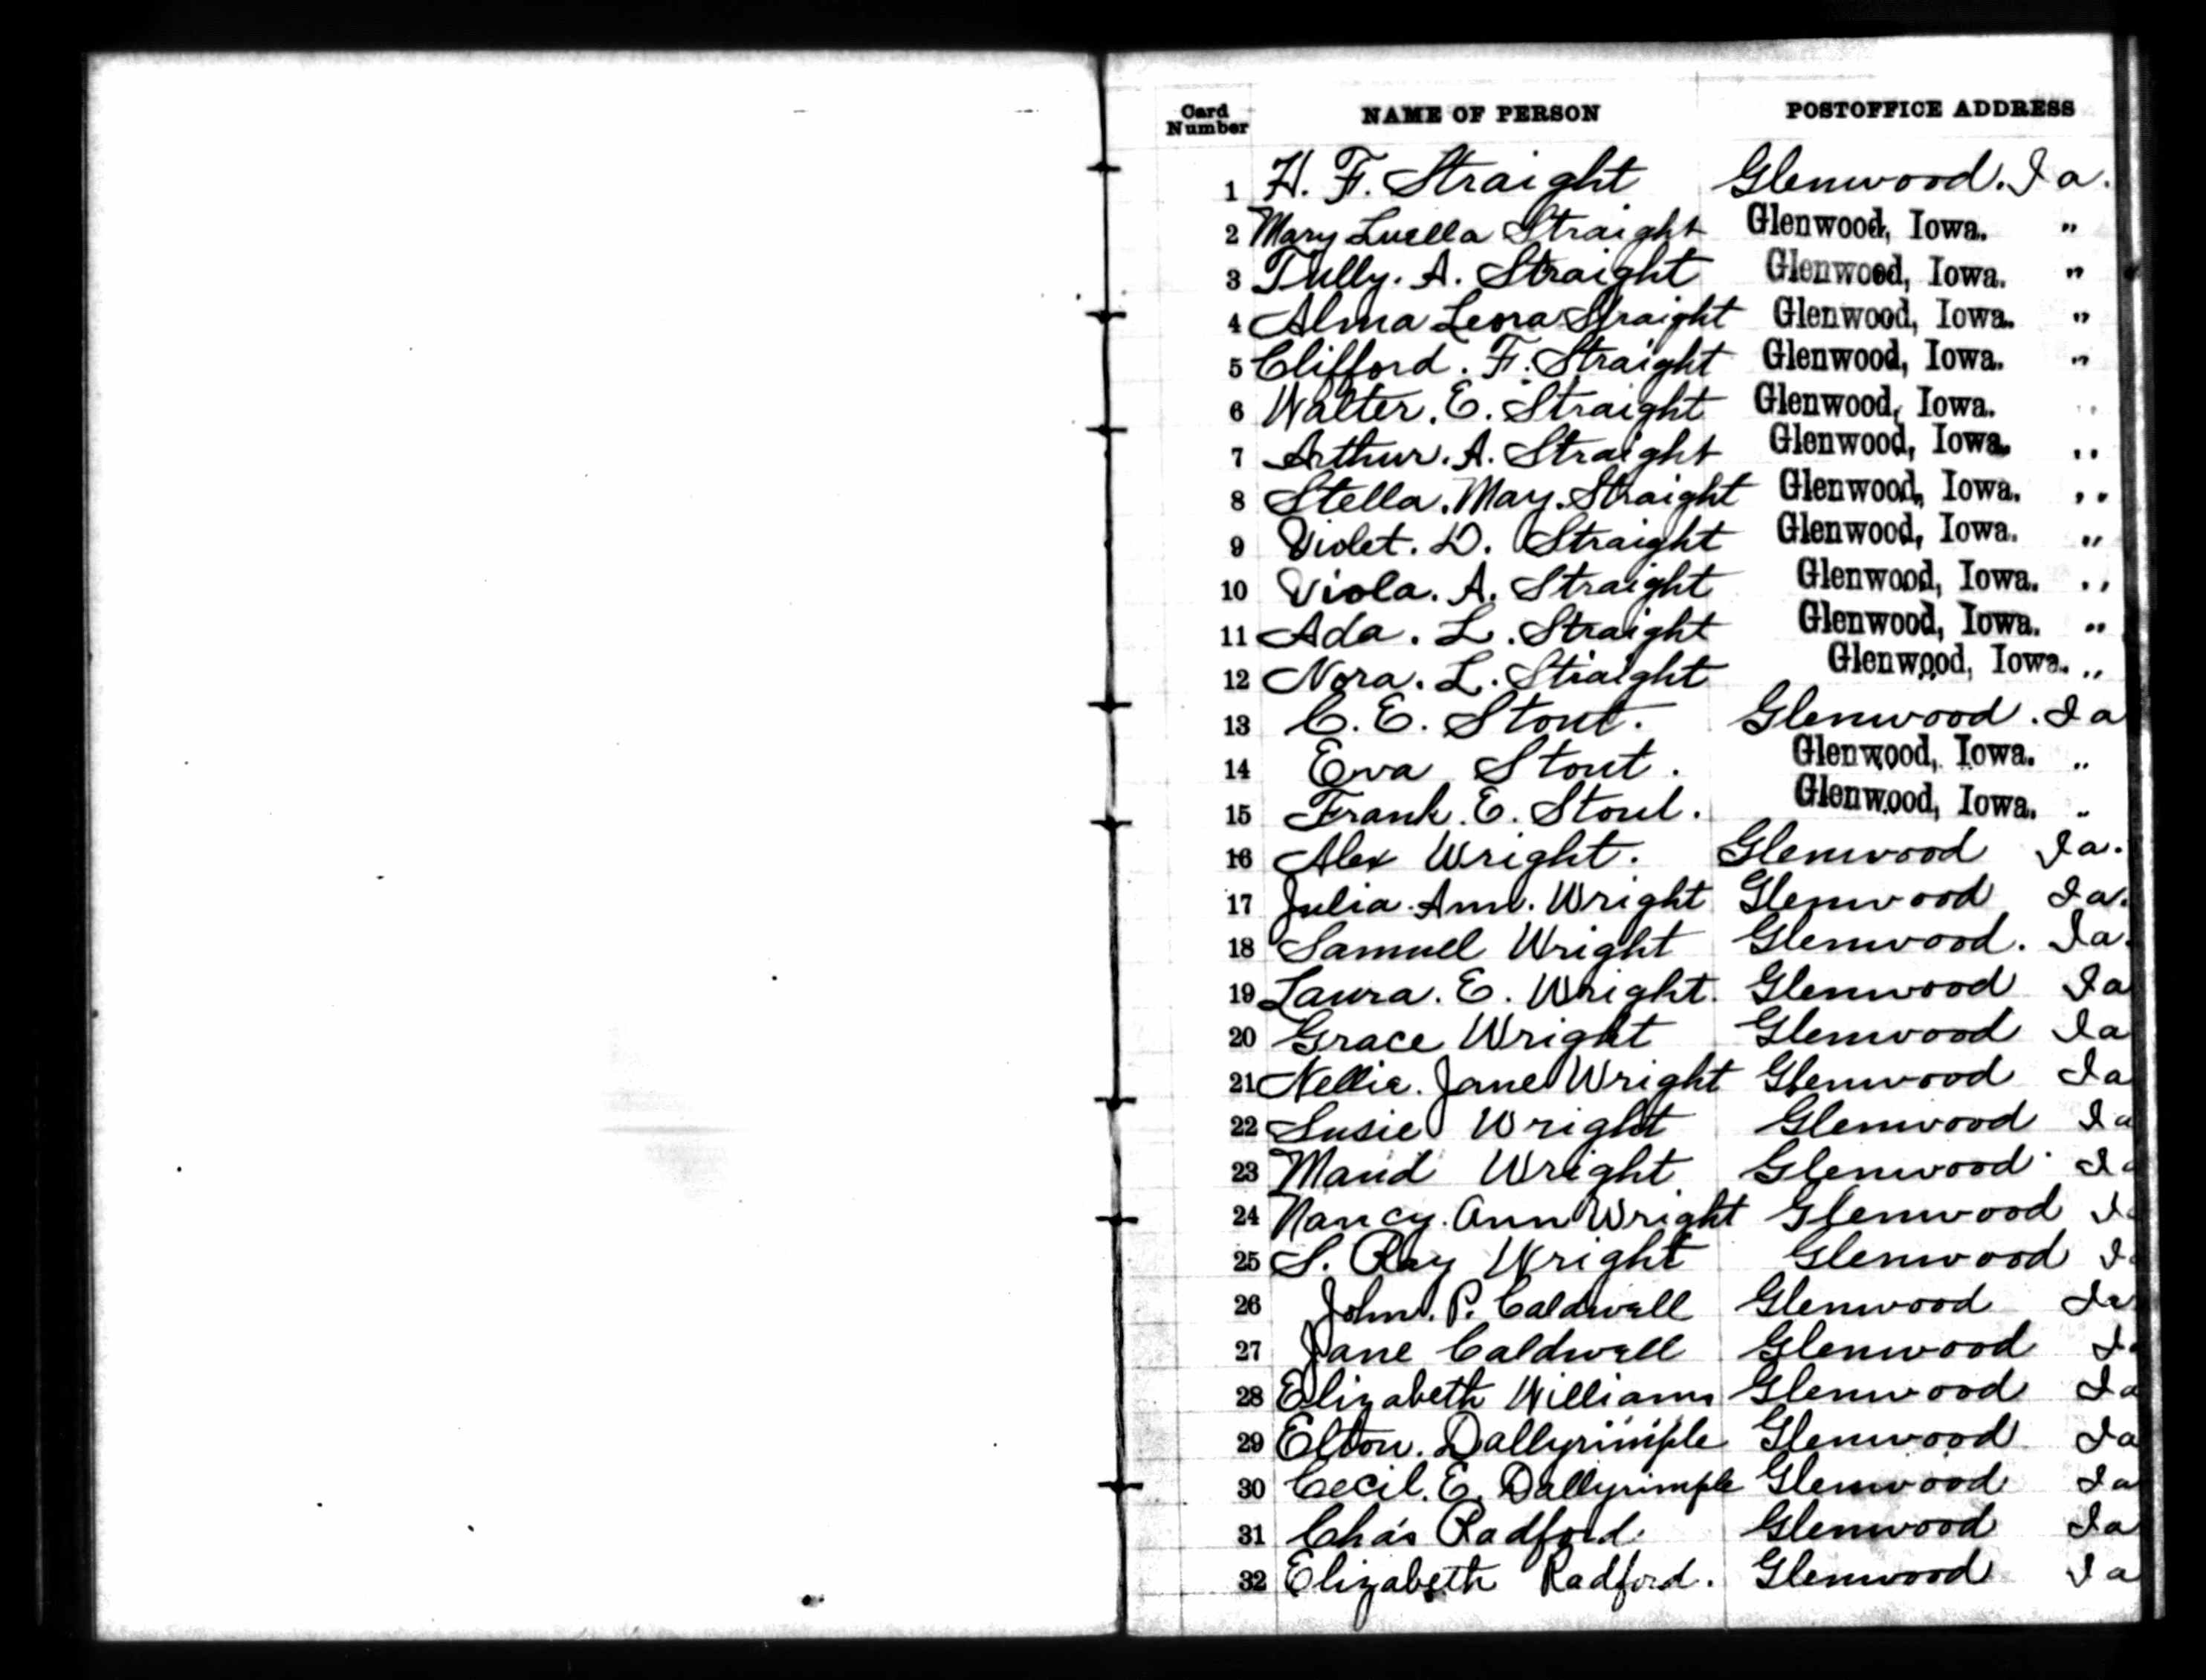 Card Number NAME OF PERSON POSTOFFICE ADDRESS
1 H. F. Straight Glenwood. Ia.
2 Mary Luella Straight Glenwood, Iowa. "
3 Tully. A. Straight Glenwood, Iowa. "
4 Alma Leora Straight Glenwood, Iowa. "
5 Clifford. F. Straight Glenwood, Iowa. "
6 Walter. E. Straight Glenwood, Iowa. "
7 Arthur. A. Straight Glenwood, Iowa. "
8 Stella. May. Straight Glenwood, Iowa. "
9 Violet. D. Straight Glenwood, Iowa. "
10 Viola. A. Straight Glenwood, Iowa. "
11 Ada. L. Straight Glenwood, Iowa. "
12 Nora. L. Straight Glenwood, Iowa. "
13 C. E. Stout. Glenwood. Ia
14 Eva Stout. Glenwood, Iowa. "
15 Frank. E. Stout. Glenwood, Iowa. "
16 Alex Wright. Glenwood Ia.
17 Julia. Ann. Wright Glenwood Ia.
18 Samuel Wright Glenwood. Ia.
19 Laura. E. Wright. Glenwood Ia
20 Grace Wright Glenwood Ia
21 Nellie. Jane Wright Glenwood Ia
22 Susie Wright Glenwood Ia
23 Maud Wright Glenwood Ia
24 Nancy. Ann Wright Glenwood Ia
25 S. Ray Wright Glenwood Ia
26 John. P. Caldwell Glenwood Ia
27 Jane Caldwell Glenwood Ia
28 Elizabeth Williams Glenwood Ia
29 Elton. Dallyrimple Glenwood Ia
30 Cecil. E. Dallyrimple Glenwood Ia
31 Chas Radford. Glenwood Ia
32 Elizabeth Radford. Glenwood Ia